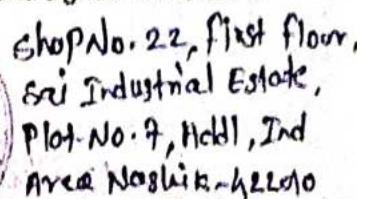 Shop No. 22, First floor,
Sri Industrial Estate,
Plot No. 7, Hddl, Ind
Area Nashik-422010